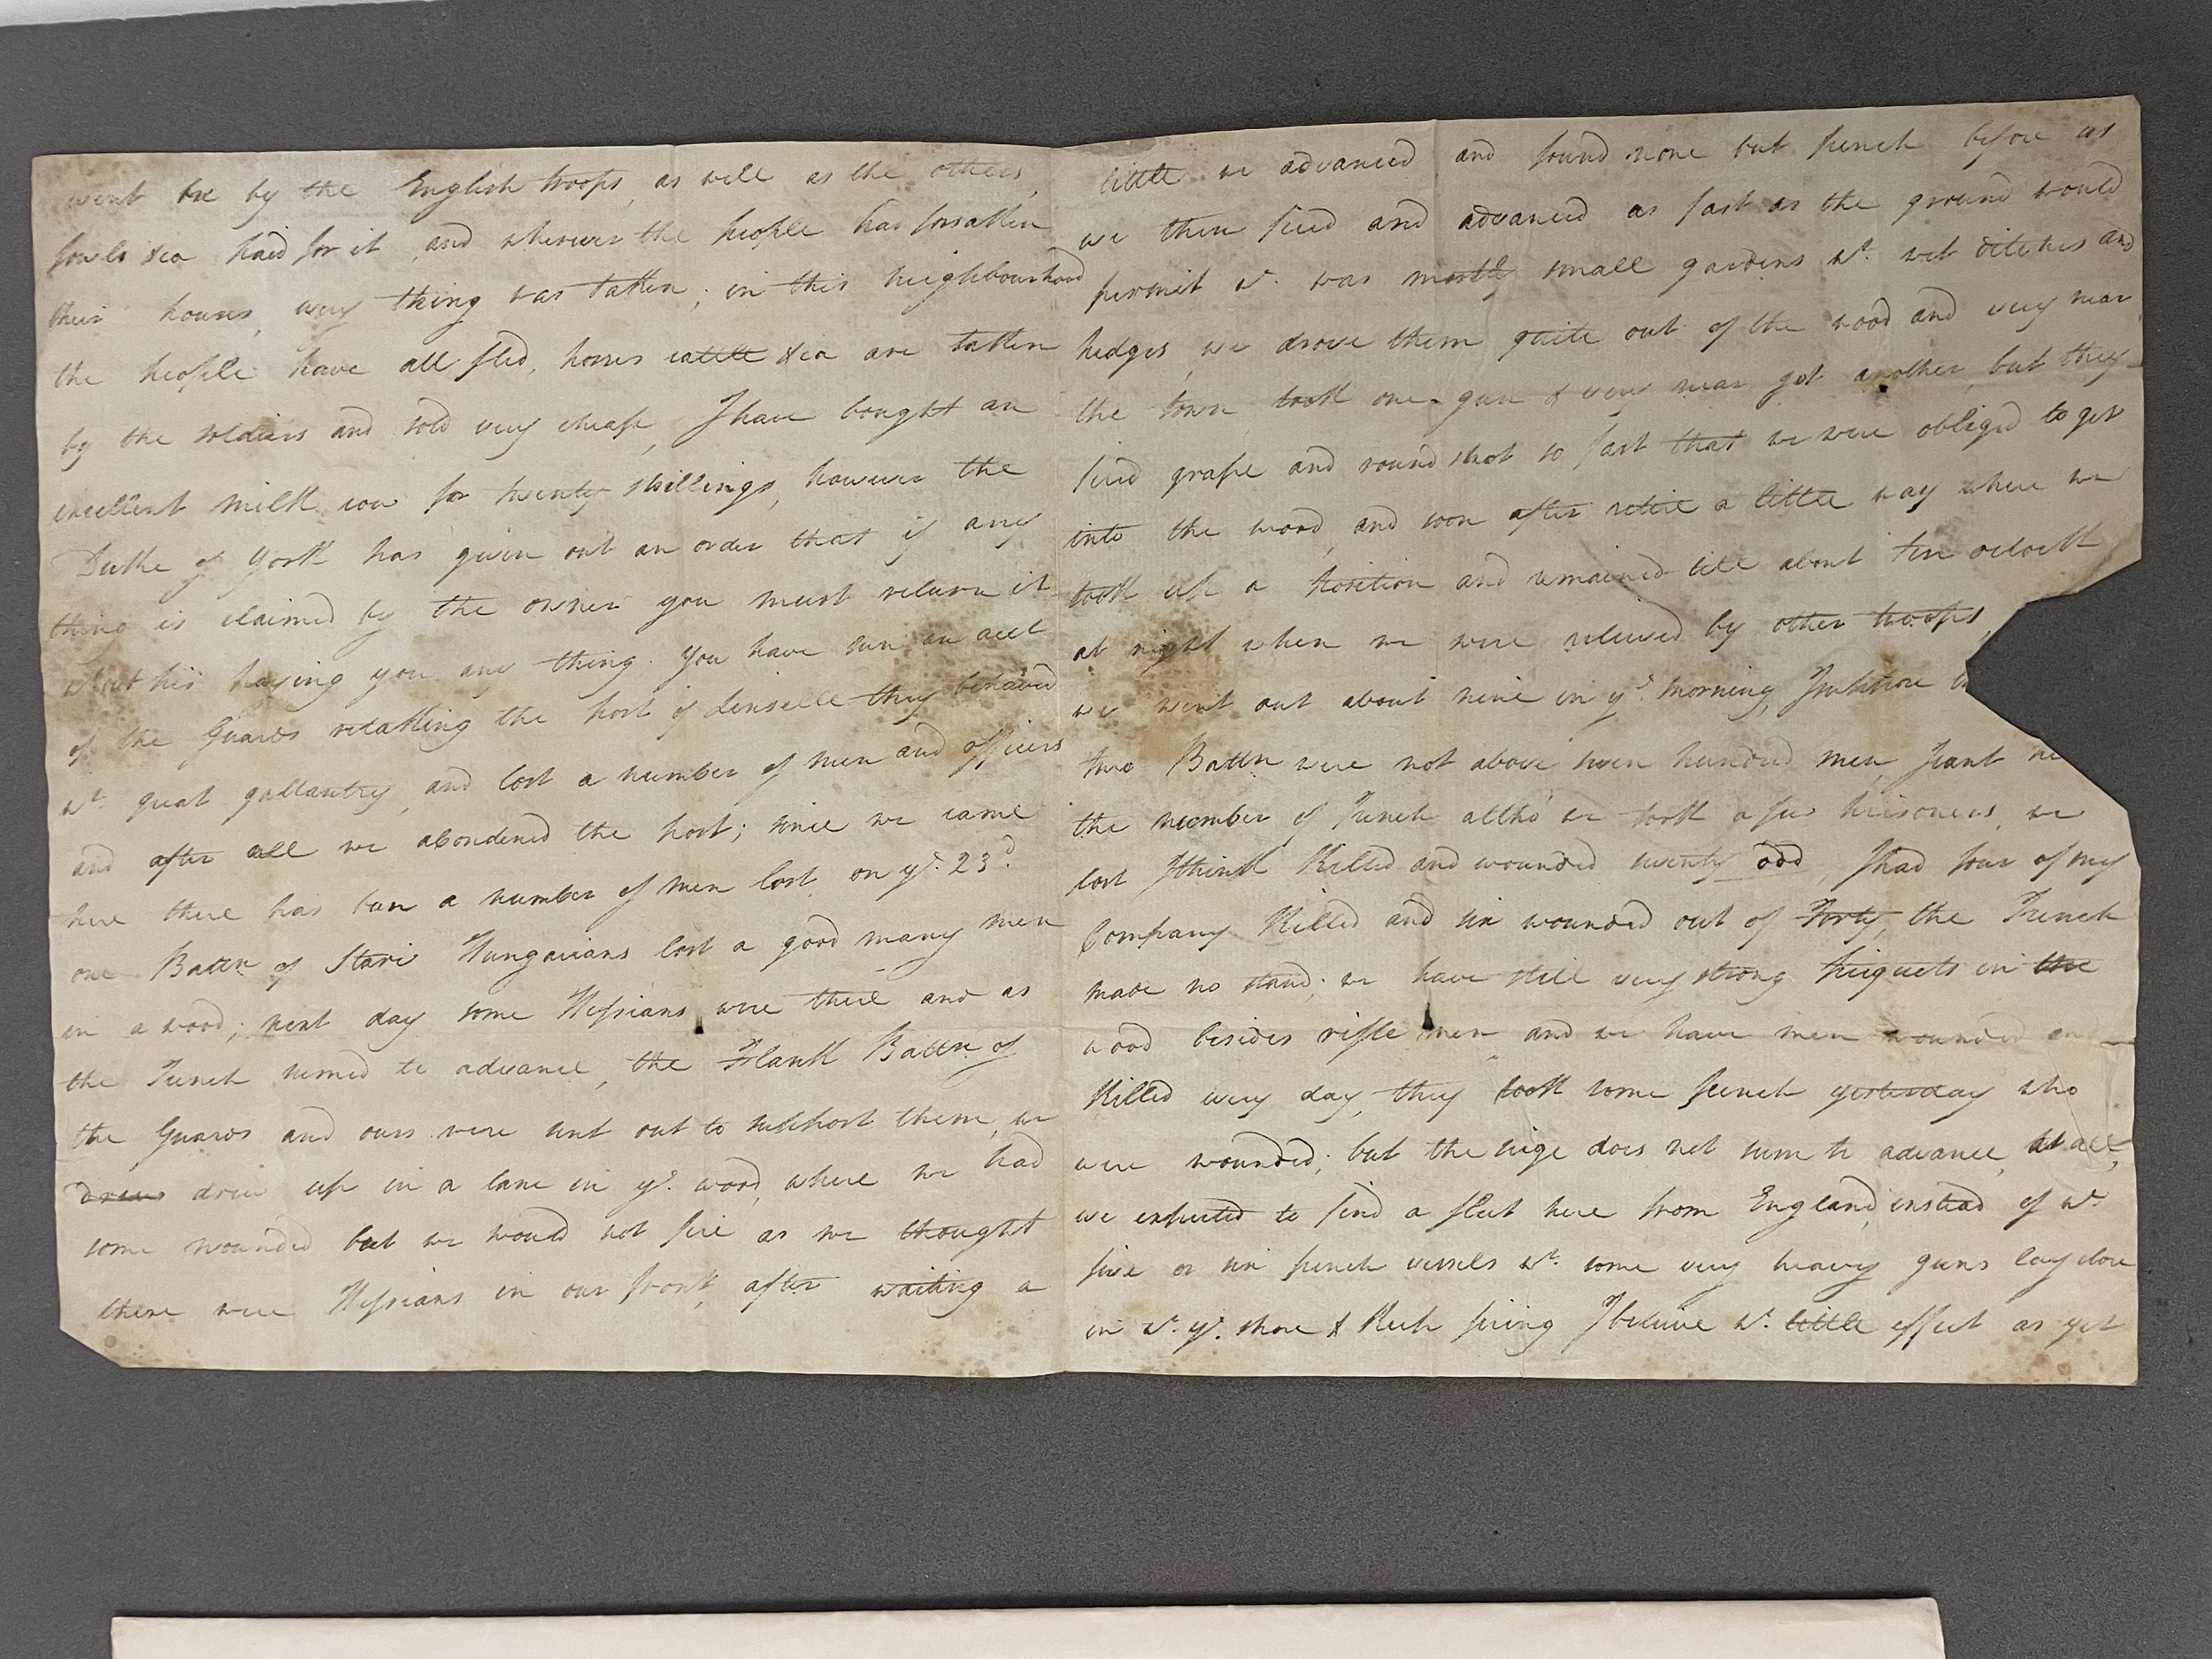 went on by the English troops, as well as the others,
fowls &ca paid for it, and wherever the people has forsaken
their houses, every thing was taken; in this neighbourhood
the people have all fled, horses cattle &ca are taken
by the soldiers and sold very cheap, I have bought an
excellent milk cow for twenty shillings, however the
Duke of York has given out an order that if any
thing is claimed by the owner you must return it
without his paying you any thing. You have seen an acct
of the Guards retaking the post of Linselle they behaved
wt. great gallantry, and lost a number of men and officers
and after all we abondened the post; since we came
here there has been a number of men lost, on ye. 23d.
one Battn of Stari Hungarians lost a good many men
in a wood; next day some Hessians were there and as
the French seemed to advance, the Flank Battn of
the Guards and ours were sent out to support them, we
drew up in a lane in ye. wood, where we had
some wounded but we would not fire as we thought
there were Hessians in our front, after waiting a
little we advanced and found none but french before us
we then fired and advanced as fast as the ground would
permit wh. was mostly small gardens wt. wet ditches and
hedges, we drove them quite out of the wood and very near
the town took one gun & very near got another, but they
fired grape and round shot so fast that we were obliged to get
into the wood, and soon after retire a little way where we
took up a position and remained till about ten oclock
at night when we were relieved by other troops,
we went out about nine in ye. morning, I suppose
two Battn were not above seven hundred men, I cant
the number of French altho' we took a few prisoners, we
lost I think Killed and wounded twenty odd, I had four of my
Company Killed and six wounded out of Forty, the French
made no stand; we have still very strong piquets in the
wood besides rifle men and we have men wounded
Killed every day, they took some french yesterday who
were wounded; but the siege does not seem to advance, at all,
we expected to find a fleet here from England, instead of wh
five or six french vessels wt. some very heavy guns lay close
in wt. ye. shore & Keep firing I believe wt. little effect as yet